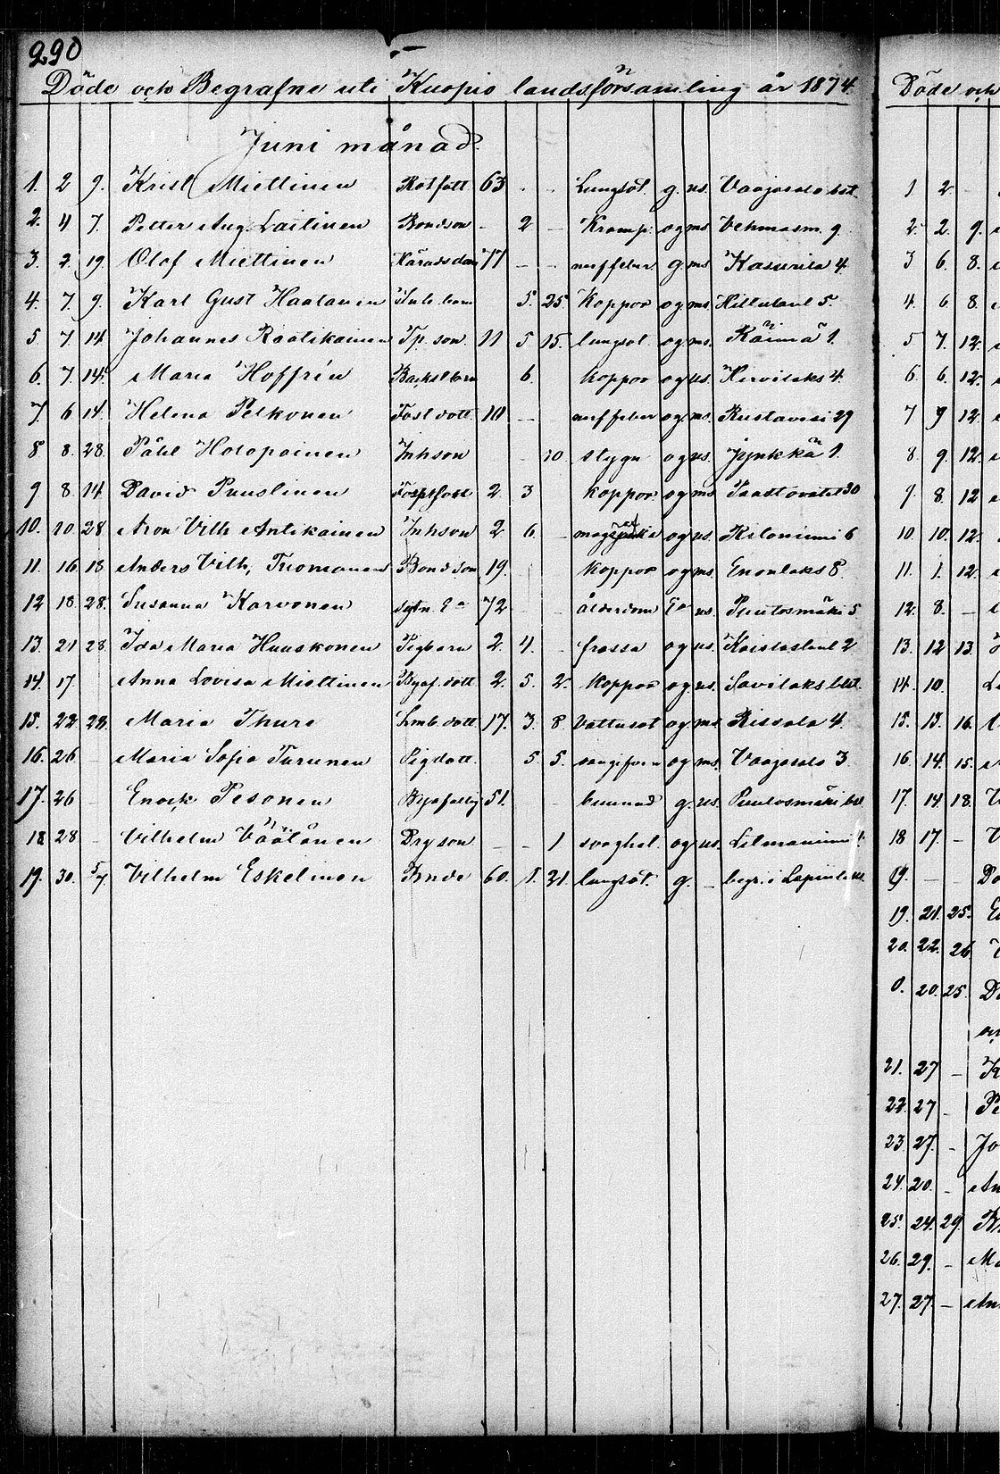 290
Döde och Begrafne uti Kuopio landsförsamling år 1874
Juni månad.
1. 2 9. Krist Miettinen Rotfatt 63 - - Lungsot. g. us. Vaajasalo bst.
2. 4 7. Petter Aug. Laitinen Bondson - 2 - Kramp. og ms Vehmasm. 9
3. 2. 19 Olof Miettinen 77 - - nerffeber g. ms. Kasurila 4
4. 7. 9. Karl Gust Haatanen Inh. barn 5. 25 Koppor og ms. Hiltulanl 5.
5 7 14 Johannes Raatikainen Tp. son. 11 5 15. lungsot og ms. Käimä 1.
6. 7. 14. Maria Hoffrén 6. koppor og us. Hirvilaks 4.
7. 6 14. Helena Pelkonen Fost dott 10 - - nerffeber og ms. Kustavesi 29
8 8. 28. Påhl Holopainen Inhson 10 stygn og us. Jynkkä 1.
9 8. 14 David Puustinen 2. 3 koppor og ms 30
10. 10. 28 Aron Vilh Antikainen Inhson 2 6. - og us. Ritoniemi 6
11. 16 18 Anders Vilh, Tuomainen Bondson 19. koppor og ms. Enonlaks 8.
12 18. 28. Susanna Karvonen Sytn. E 72 - - ålderdom E us. Puutosmäki 5
13. 21 28 Ida Maria Huuskonen Pigbarn 2. 4. - frossa og us. 2
14. 17 Anna Lovisa Miettinen dott 2. 5. 2. koppor og us. Savilaks bst.
15. 22 28. Maria Thure Lmb dott 17. 3. 8 Vattusot og ms. Rissala 4.
16. 26 Maria Sofia Turunen Pigdott. 5 5. og ms. Vaajasalo 3
17. 26 - Enock Pesonen 51. g. us. Puutosmäki bst
18 28 - Vilhelm Väätänen Drgson - - 1 svaghet. og us.
19. 30. 5/7 Vilhelm Eskelinen Bnde 60. 1. 21. lungsot. g. - begr. i Lapinlaks
Döde och
1 2
2. 2. 9.
3 6. 8.
4. 6 8.
5 7. 12.
6. 6 12.
7 9 12.
8. 9. 12.
9. 8. 12
10. 10. 12.
11. 1. 12.
12. 8. -
13. 12 13.
14. 10.
15. 13. 16.
16. 14. 15.
17. 14 18.
18 17. -
19. 21. 25.
20. 22. 26
0. 20. 25.
21. 27 -
22. 27 -
23 27. -
24. 20. -
25. 24. 29.
26. 29. -
27. 27. -